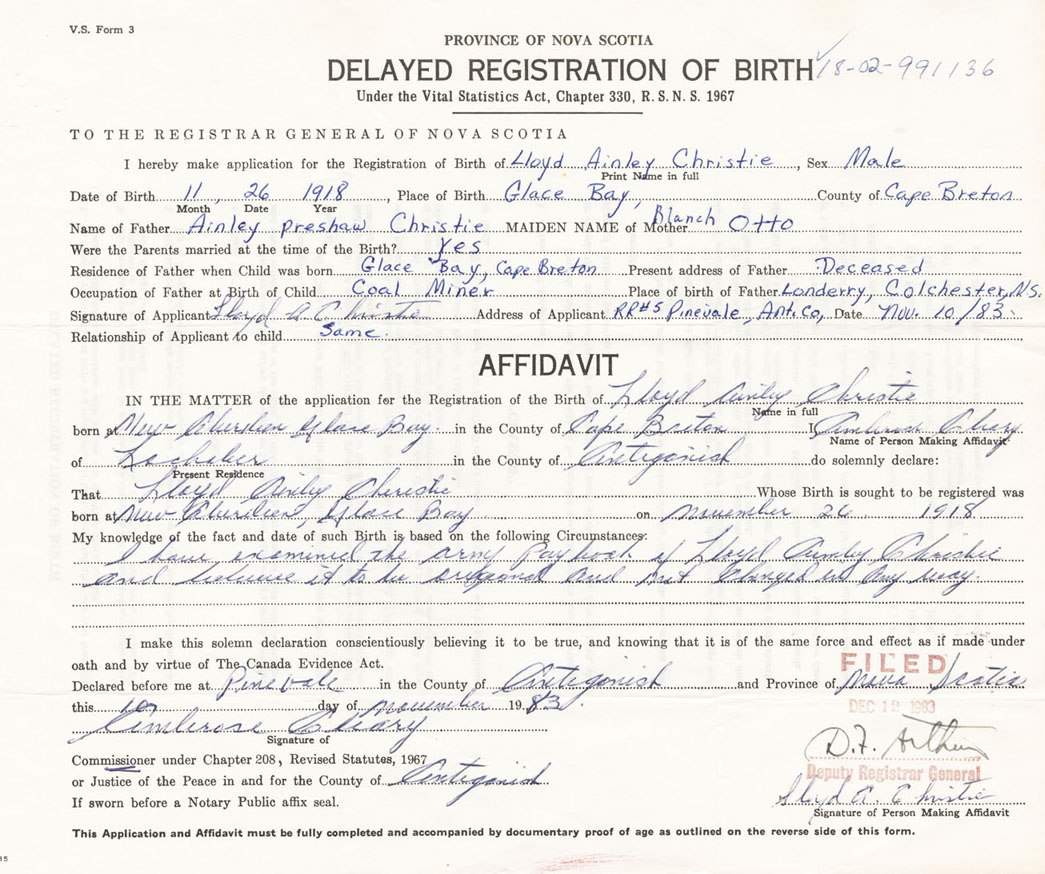 V.S. Form 3
PROVINCE OF NOVA SCOTIA
DELAYED REGISTRATION OF BIRTH 18-02-991136
Under the Vital Statistics Act, Chapter 330, R.S.N.S. 1967
TO THE REGISTRAR GENERAL OF NOVA SCOTIA
I hereby make application for the Registration of Birth of Lloyd Ainley Christie, Sex Male
Print Name in full
Date of Birth 11, 26 1918, Place of Birth Glace Bay, County of Cape Breton
Month Date Year
Name of Father Ainley Preshaw Christie MAIDEN NAME of Mother Blanch Otto
Were the Parents married at the time of the Birth? Yes
Residence of Father when Child was born Glace Bay, Cape Breton Present address of Father Deceased
Occupation of Father at Birth of Child Coal Miner Place of birth of Father Londerry, Colchester, N.S.
Signature of Applicant Lloyd A Christie Address of Applicant RR#5 Pinevale, Ant. Co, Date Nov. 10/83.
Relationship of Applicant to child Same.
AFFIDAVIT
IN THE MATTER of the application for the Registration of the Birth of Lloyd Ainley Christie
Name in full
born at New Aberdeen Glace Bay. in the County of Cape Breton I Ambrose Cleary
Name of Person Making Affidavit
of Lochaber in the County of Antigonish do solemnly declare:
Present Residence
That Lloyd Ainley Christie Whose Birth is sought to be registered was
born at New Aberdeen, Glace Bay on November 26 1918
My knowledge of the fact and date of such Birth is based on the following Circumstances:
I have examined the army Paybook of Lloyd Ainley Christie
and believe it to be original and not changed in any way.
I make this solemn declaration conscientiously believing it to be true, and knowing that it is of the same force and effect as if made under
oath and by virtue of The Canada Evidence Act.
FILED
Declared before me at Pinevale in the County of Antigonish and Province of Nova Scotia
this 10 day of November 1983.
DEC 12 1983
Ambrose Cleary
Signature of
D.F. Arthur
Commissioner under Chapter 208, Revised Statutes, 1967
Deputy Registrar General
or Justice of the Peace in and for the County of Antigonish
Lloyd A. Christie
If sworn before a Notary Public affix seal.
Signature of Person Making Affidavit
This Application and Affidavit must be fully completed and accompanied by documentary proof of age as outlined on the reverse side of this form.